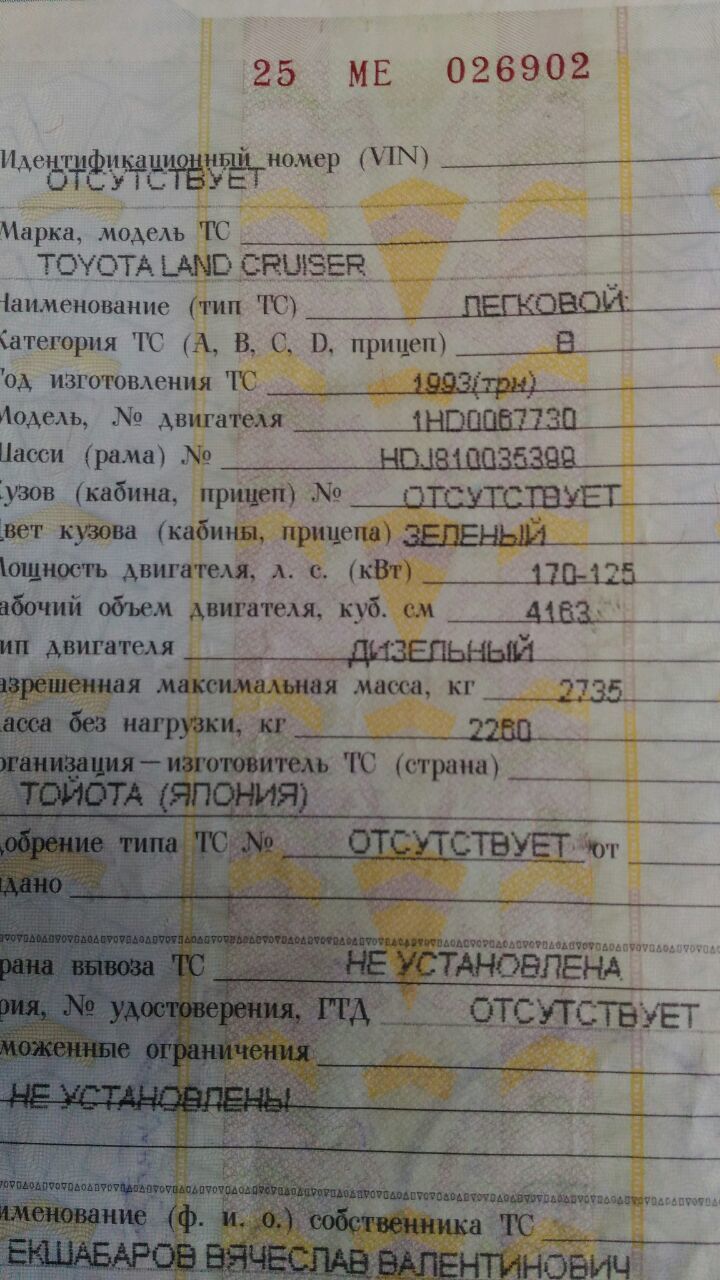 25 МЕ 026902
Идентификационный номер (VIN)
ОТСУТСТВУЕТ
Марка, модель ТС
TOYOTA LAND CRUISER
Наименование (тип ТС) ЛЕГКОВОЙ
Категория ТС (A, B, C, D, прицеп) B
Год изготовления ТС 1993(три)
Модель, № двигателя 1HD0067730
Шасси (рама) № HDJ810035399
Кузов (кабина, прицеп) № ОТСУТСТВУЕТ
Цвет кузова (кабины, прицепа) ЗЕЛЕНЫЙ
Мощность двигателя, л. с. (кВт) 170-125
абочий объем двигателя, куб. см 4163
ип двигателя ДИЗЕЛЬНЫЙ
азрешенная максимальная масса, кг 2735
асса без нагрузки, кг 2260
рганизация — изготовитель ТС (страна)
ТОЙОТА (ЯПОНИЯ)
добрение типа ТС № ОТСУТСТВУЕТ от
дано
рана вывоза ТС НЕ УСТАНОВЛЕНА
рия, № удостоверения, ГТД ОТСУТСТВУЕТ
моженные ограничения
НЕ УСТАНОВЛЕНЫ
именование (ф. и. о.) собственника ТС
ЕКШАБАРОВ ВЯЧЕСЛАВ ВАЛЕНТИНОВИЧ